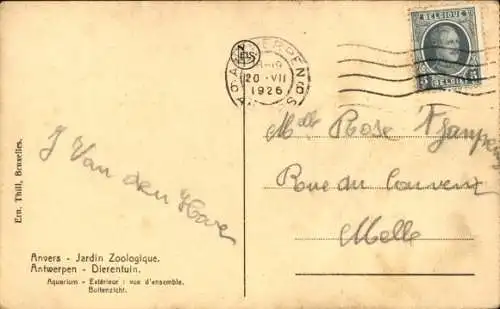 BELGIQUE
5 5
ANTWERPEN 6
NELS
20 · VII
1926
J Van den Hove
Mlle Rose
Rue du Couvent
Melle
Ern. Thill, Bruxelles.
Anvers - Jardin Zoologique.
Antwerpen - Dierentuin.
Aquarium - Extérieur : vue d'ensemble.
Buitenzicht.